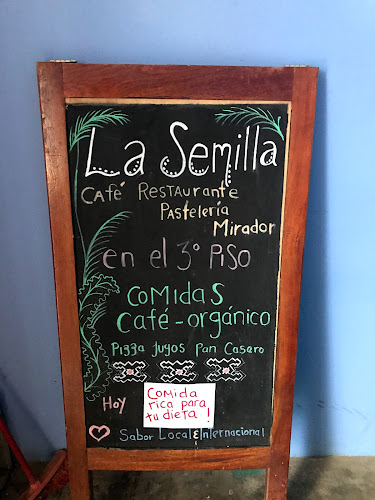 La Semilla
Café Restaurante
Pastelería
Mirador
en el 3° Piso
Comidas
café-orgánico
Pizza Jugos Pan Casero
Hoy
Comida
rica para
tu dieta!
Sabor Local E Internacional